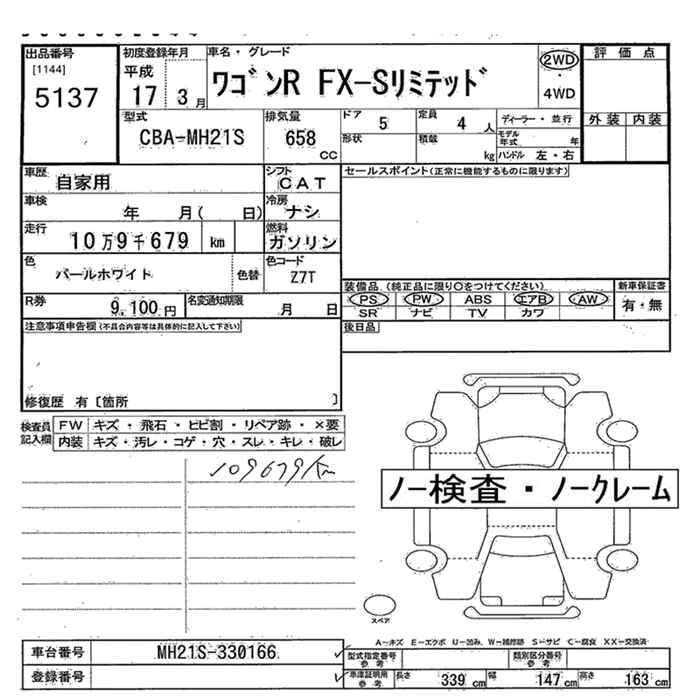 出品番号 初度登録年月 車名・グレード 2WD 評価点
[1144] 平成 ワゴンR FX-Sリミテッド ・
5137 17 3月 4WD
型式 排気量 ドア 5 定員 4人 ディーラー・並行 外装 内装
CBA-MH21S 658 cc 形状 積載 kg モデル年式 年
ハンドル 左・右
車歴 自家用 シフト CAT セールスポイント(正常に機能するものに限ります)
車検 年 月( 日) 冷房 ナシ
走行 10万9千679 km 燃料 ガソリン
色 パールホワイト 色替 色コード Z7T
装備品(純正品に限り○をつけてください) 新車保証書
R券 9,100円 名変通知期限 月 日 PS PW ABS エアB AW 有・無
SR ナビ TV カワ
注意事項申告欄(不具合内容等は具体的に記入して下さい) 後日品
修復歴 有〔箇所 〕
検査員記入欄 FW キズ・飛石・ヒビ割・リペア跡・×要
内装 キズ・汚レ・コゲ・穴・スレ・キレ・破レ
109679km
ノー検査・ノークレーム
スペア
A-キズ E-エクボ U-凹み W-補修跡 S-サビ C-腐食 XX-交換済
車台番号 MH21S-330166 型式指定番号 参考 類別区分番号 参考
登録番号 車庫証明用 参考 長さ 339cm 幅 147cm 高さ 163cm